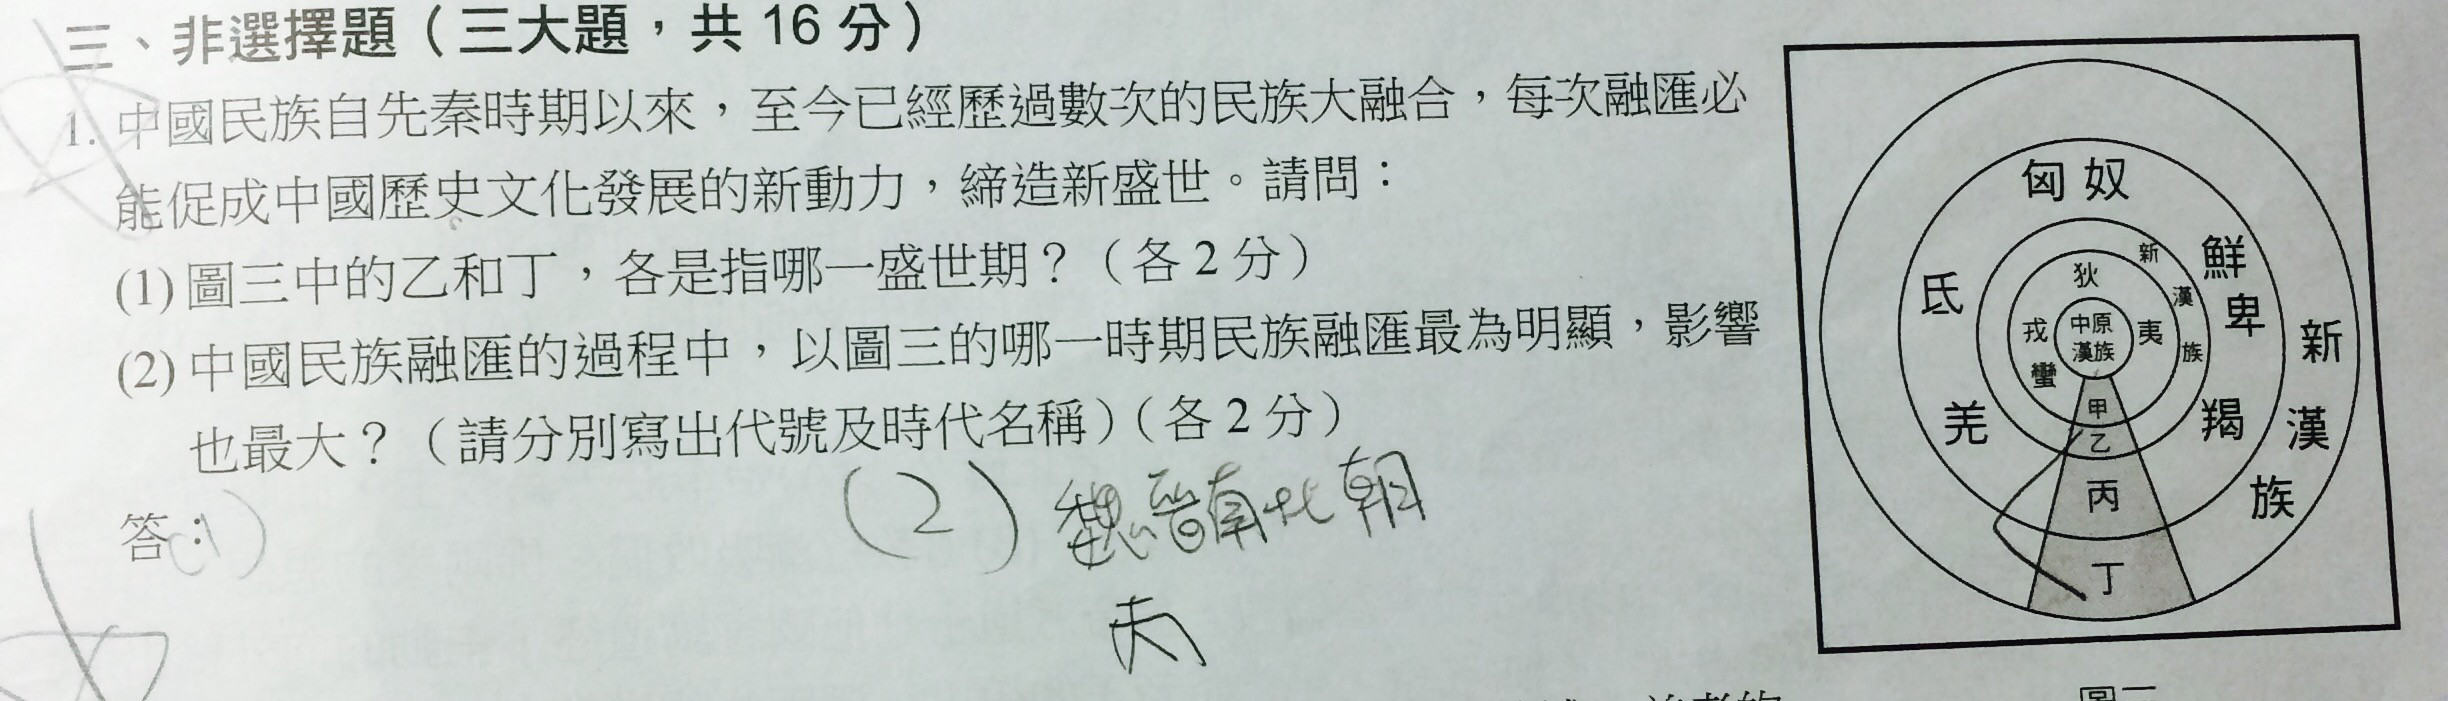 三、非選擇題（三大題，共16分）
1. 中國民族自先秦時期以來，至今已經歷過數次的民族大融合，每次融匯必
能促成中國歷史文化發展的新動力，締造新盛世。請問：
(1) 圖三中的乙和丁，各是指哪一盛世期？（各2分）
(2) 中國民族融匯的過程中，以圖三的哪一時期民族融匯最為明顯，影響
也最大？（請分別寫出代號及時代名稱）（各2分）
答：(1)
(2) 魏晉南北朝
丙
匈奴
鮮卑
羯
羌
氐
新漢族
新漢族
狄
夷
蠻
戎
中原
漢族
甲
乙
丙
丁